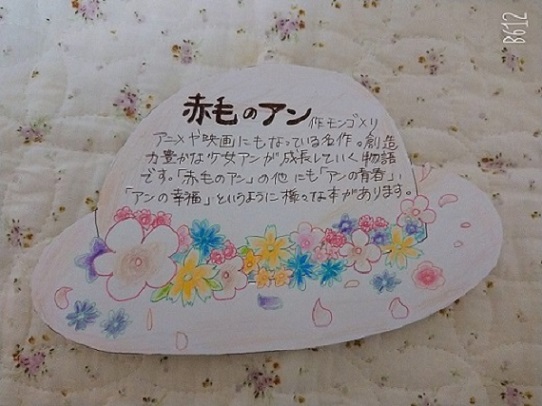 赤毛のアン
作 モンゴメリ
アニメや映画にもなっている名作。創造
力豊かな少女アンが成長していく物語
です。「赤毛のアン」の他にも「アンの青春」、
「アンの幸福」というように様々な本があります。
B612